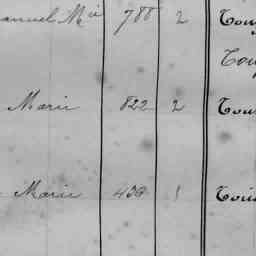 anuel Mie 788 2 Tou
Tou
Marie 822 2 Tou
Marie 438 1 Tou